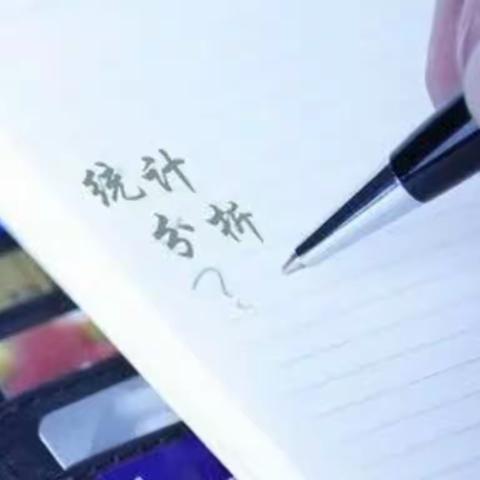 统计
分析
?